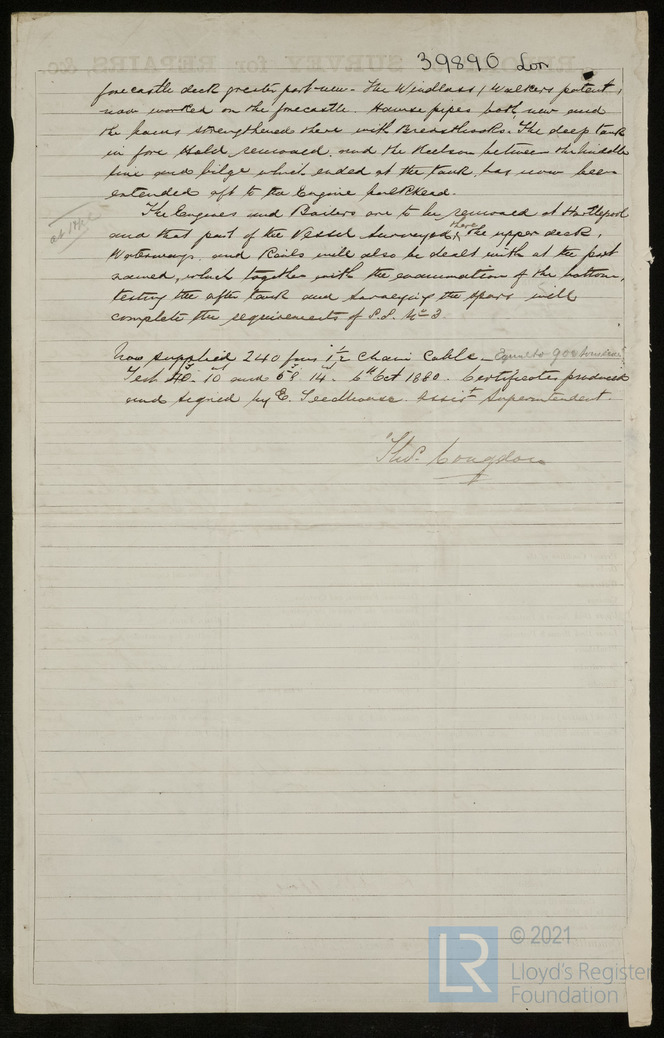 39890 Lon
forecastle deck greater part new. The Windlass (Walkers patent)
now worked on the forecastle. Hawse pipes both new and
the bows strengthened there with Breasthooks. The deep tank
in fore Hold removed, and the Keelson between the middle
line and bilge which ended at the tank, has now been
extended aft to the Engine bulkhead.
The Engines and Boilers are to be removed at Hartlepool
and that part of the Vessel surveyed there, the upper deck,
Waterways and Rails will also be dealt with at the port
named, which together with the examination of the bottom,
testing the after tank and surveying the spars will
complete the requirements of S.S. No 3.
Now supplied 240 fms 1 1/2 Chain Cable - Equal to 90
Test 10 and 14. 6th Oct 1880. Certificates produced
and signed by E. Assist Superintendent.
Thos. Congdon
© 2021
LR
Lloyd's Register
Foundation